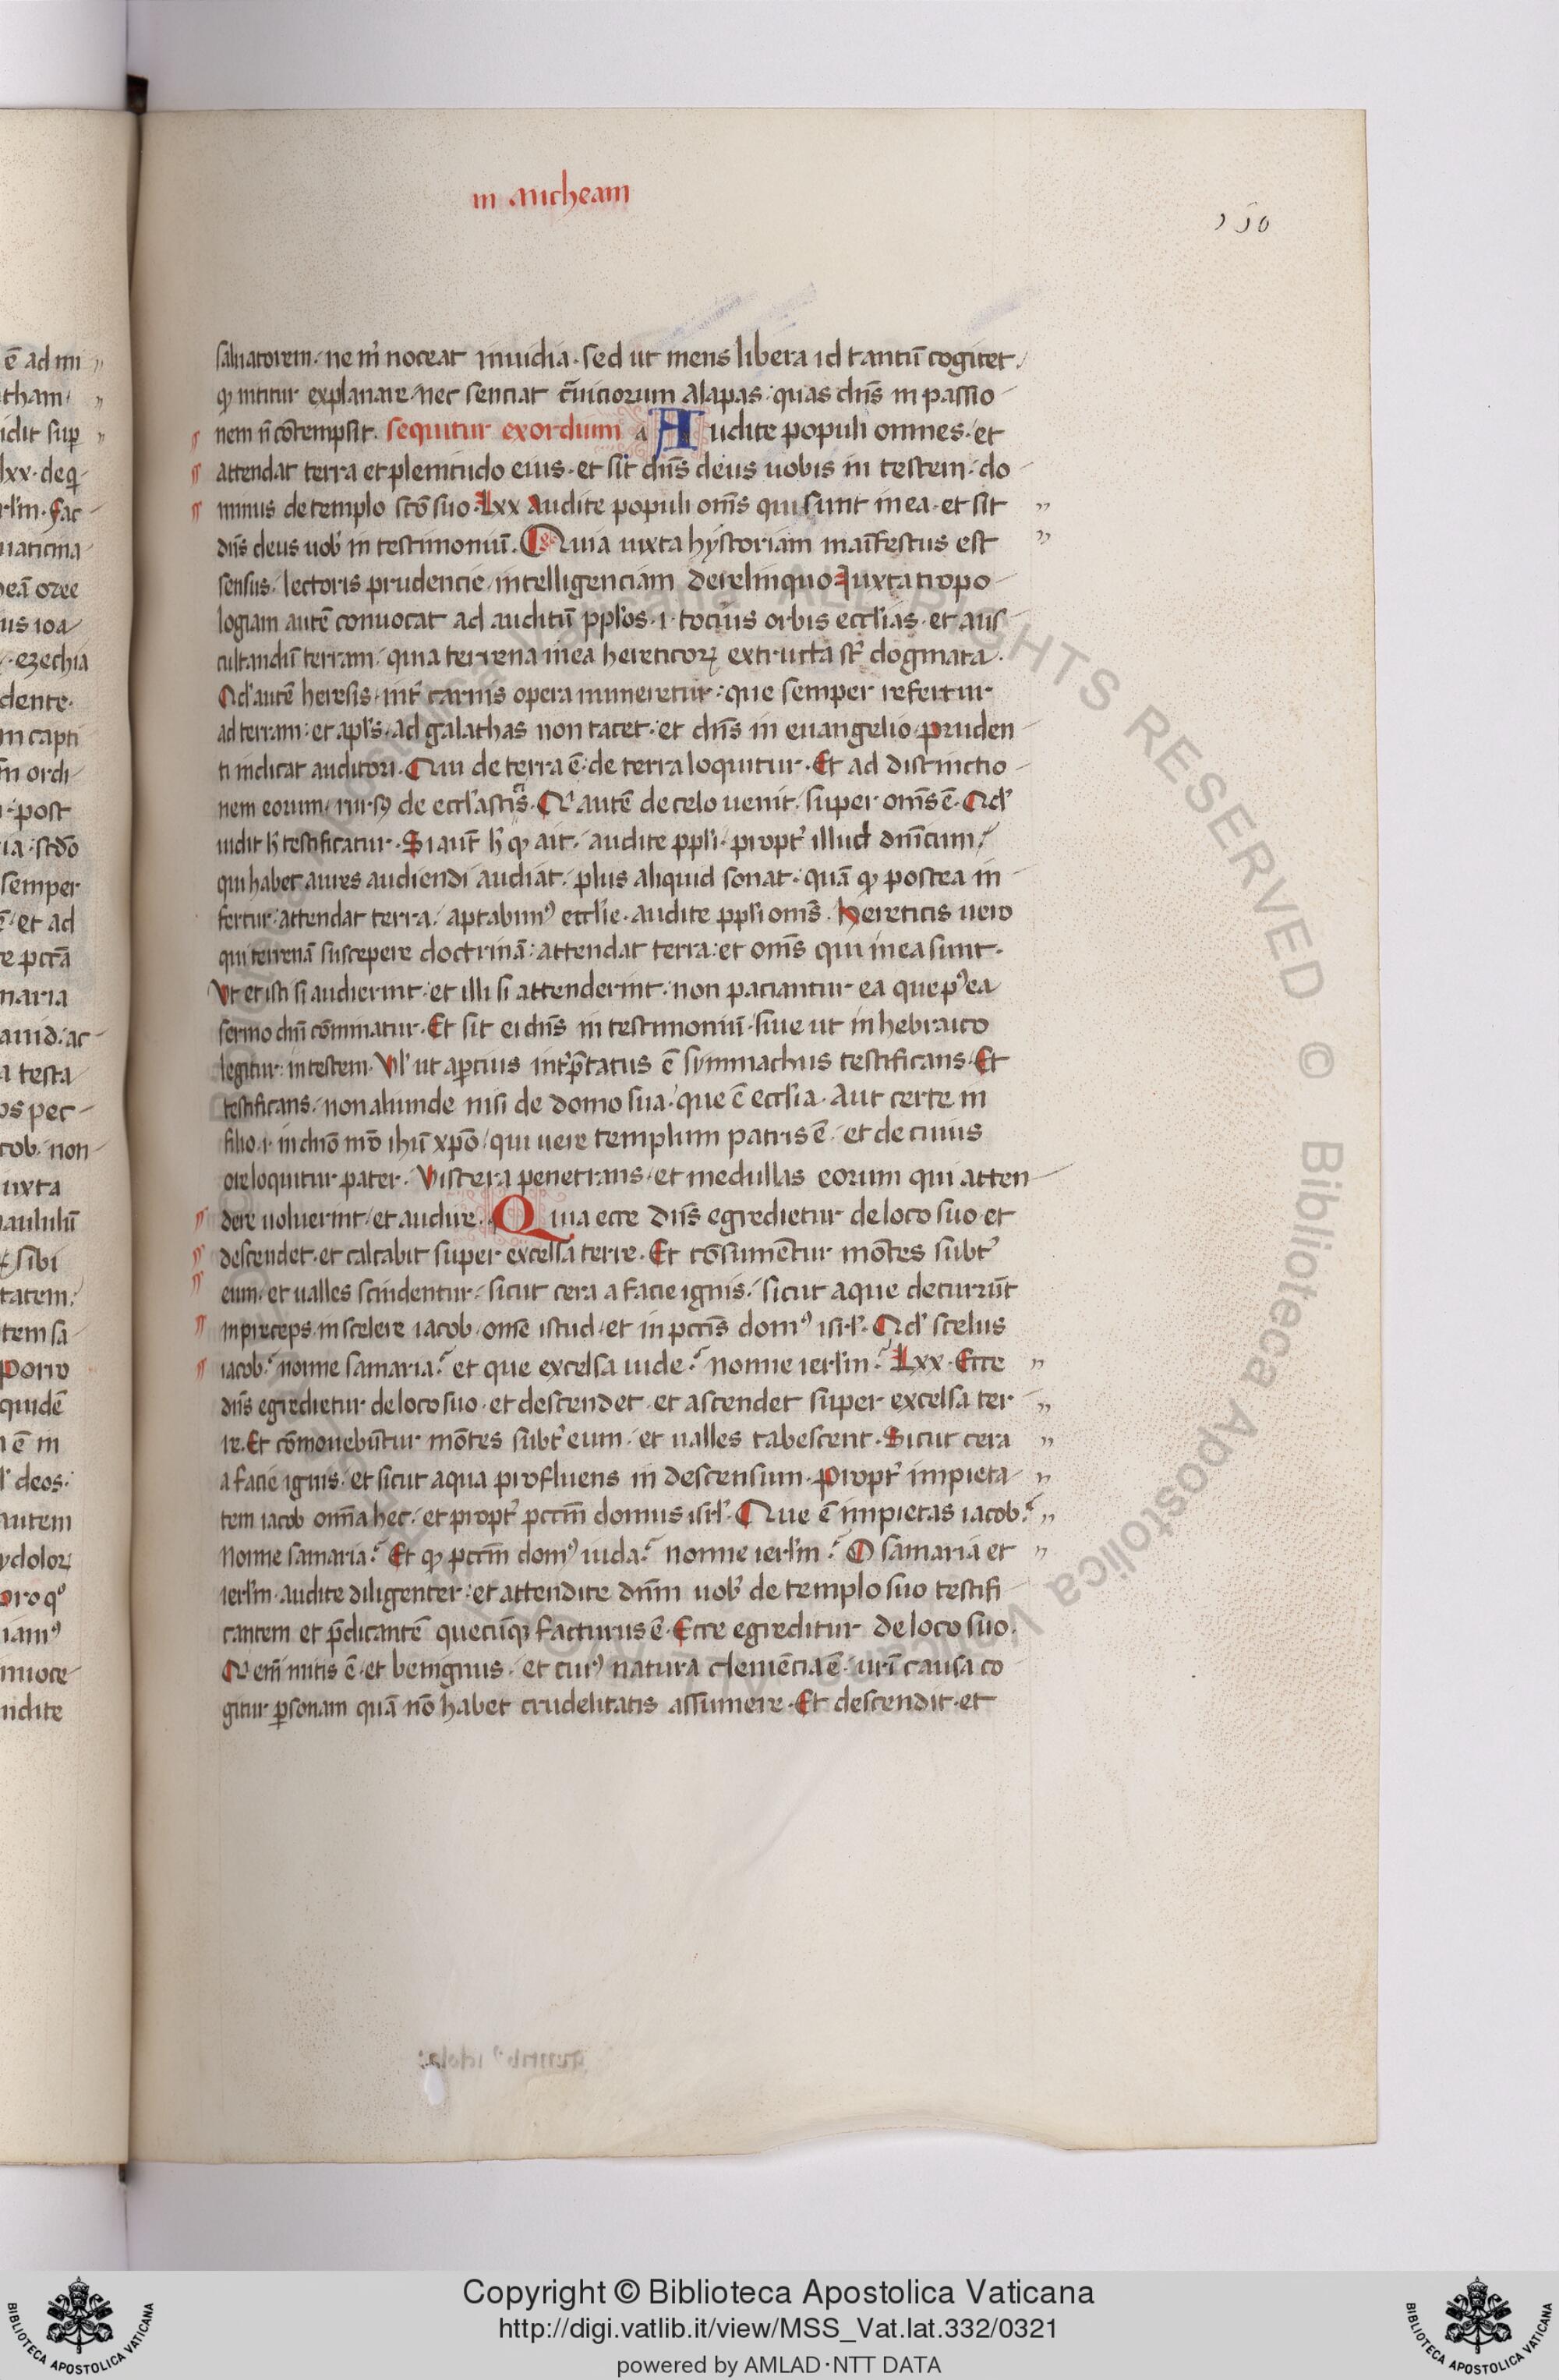 in Micheam
150
saluatorem. ne m̄ noceat inuidia. sed ut mens libera id tantū cogitet.
qđ nititur explanare. nec senciat c̄uiciorum alapas. quas dn̄s in passio
nem n̄ cōtempsit. sequitur exordium a Audite populi omnes. et
attendat terra et plenitudo eius. et sit dn̄s deus uobis in testem. do
minus de templo sc̄o suo. Lxx Audite populi om̄s qui sunt in ea. et sit
dn̄s deus uob in testimoniū. Quia iuxta hystoriam manifestus est
sensus. lectoris prudencie intelligenciam derelinquo Juxta tropo
logiam autē conuocat ad auditū pplos .i. tocius orbis eccl'ias. et aus
cultandū terram. quia terrena in ea hereticoꝝ extructa st̄ dogmata.
Qd' autē heresis int̄ carnis opera numeretur. que semper refertur
ad terram. et apl's ad galathas non tacet. et dn̄s in euangelio pruden
ti indicat auditori. Qui de terra ē. de terra loquitur. Et ad distinctio
nem eorum. rursꝰ de eccl'asticis. Qi autē de celo uenit. super om̄s ē. Qd'
uidit h̄ testificatur. Si aut̄ h̄ qđ ait. audite ppl'i. propt̄ illud dn̄icum.
qui habet aures audiendi audiat. plus aliquid sonat. quā qđ postea in
fertur. attendat terra. aptabimꝰ eccl'ie. audite ppl'i om̄s. Hereticis uero
qui terrenā suscepere doctrinā. attendat terra. et om̄s qui in ea sunt.
Vt et isti si audierint. et illi si attenderint. non paciantur ea que pꝰea
sermo dn̄i cōminatur. Et sit ei dn̄s in testimoniū. siue ut in hebraico
legitur. in testem. Vl' ut apcius int̄p̄tatus ē symmachus testificans. Et
testificans. non aliunde nisi de domo sua. que ē eccl'ia. Aut certe in
filio .i. in dn̄o nr̄o ihū xp̄o. qui uere templum patris ē. et de cuius
ore loquitur pater. Viscera penetrans. et medullas eorum qui atten
dere uoluerint. et audire. Quia ecce dn̄s egredietur de loco suo et
descendet. et calcabit super excelsa terre. Et cōsumētur mōtes subt̄
eum. et ualles scindentur. sicut cera a facie ignis. sicut aque decurrūt
in preceps. in scelere iacob. omē istud. et in pccīs domꝰ isrl'. Qd' scelus
iacob? nonne samaria? et que excelsa iude? nonne ierl'm? Lxx. Ecce
dn̄s egredietur de loco suo. et descendet. et ascendet super excelsa ter
re. Et cōmouebūtur mōtes subt̄ eum. et ualles tabescent. Sicut cera
a facie ignis. et sicut aqua profluens in descensum. Propt̄ impieta
tem iacob om̄ia hec. et propt̄ pccm̄ domus isrl'. Que ē impietas iacob?
Nonne samaria? Et qđ pccm̄ domꝰ iuda? nonne ierl'm? O samaria et
ierl'm. audite diligenter. et attendite dn̄m uob de templo suo testifi
cantem et p̄dicantē quecūqꝫ facturus ē. Ecce egreditur de loco suo.
Qi em̄ mitis ē. et benignus. et cuiꝰ natura clemēcia ē. ur̄i causa co
gitur psonam quā nō habet crudelitatis assumere. Et descendit. et
Copyright © Biblioteca Apostolica Vaticana
http://digi.vatlib.it/view/MSS_Vat.lat.332/0321
powered by AMLAD·NTT DATA